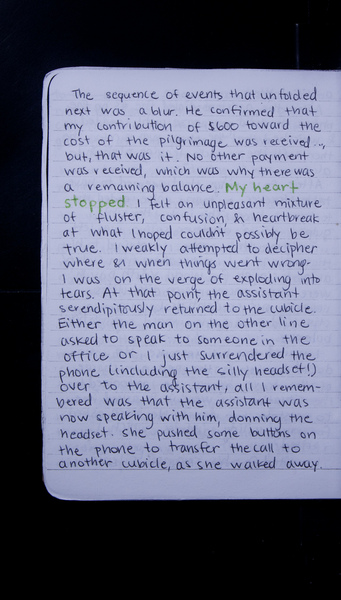 The sequence of events that unfolded
next was a blur. He confirmed that
my contribution of $600 toward the
cost of the pilgrimage was received...,
but, that was it. No other payment
was received, which was why there was
a remaining balance. My heart
stopped. I felt an unpleasant mixture
of fluster, confusion, & heartbreak
at what I hoped couldn't possibly be
true. I weakly attempted to decipher
where & when things went wrong-
I was on the verge of exploding into
tears. At that point, the assistant
serendipitously returned to the cubicle.
Either the man on the other line
asked to speak to someone in the
office or I just surrendered the
phone (including the silly headset!)
over to the assistant, all I remem-
bered was that the assistant was
now speaking with him, donning the
headset. She pushed some buttons on
the phone to transfer the call to
another cubicle, as she walked away.